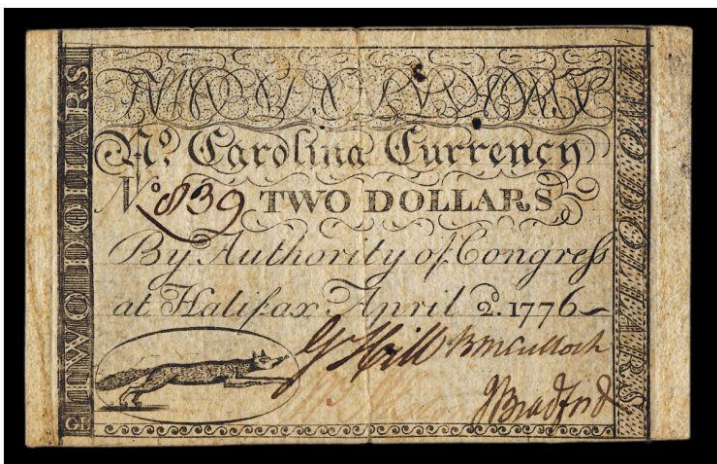 TWO DOLLARS
No. Carolina Currency
No. 839 TWO DOLLARS
By Authority of Congress
at Halifax April 2d. 1776
G Hill B McCulloch
J Bradford
TWO DOLLARS